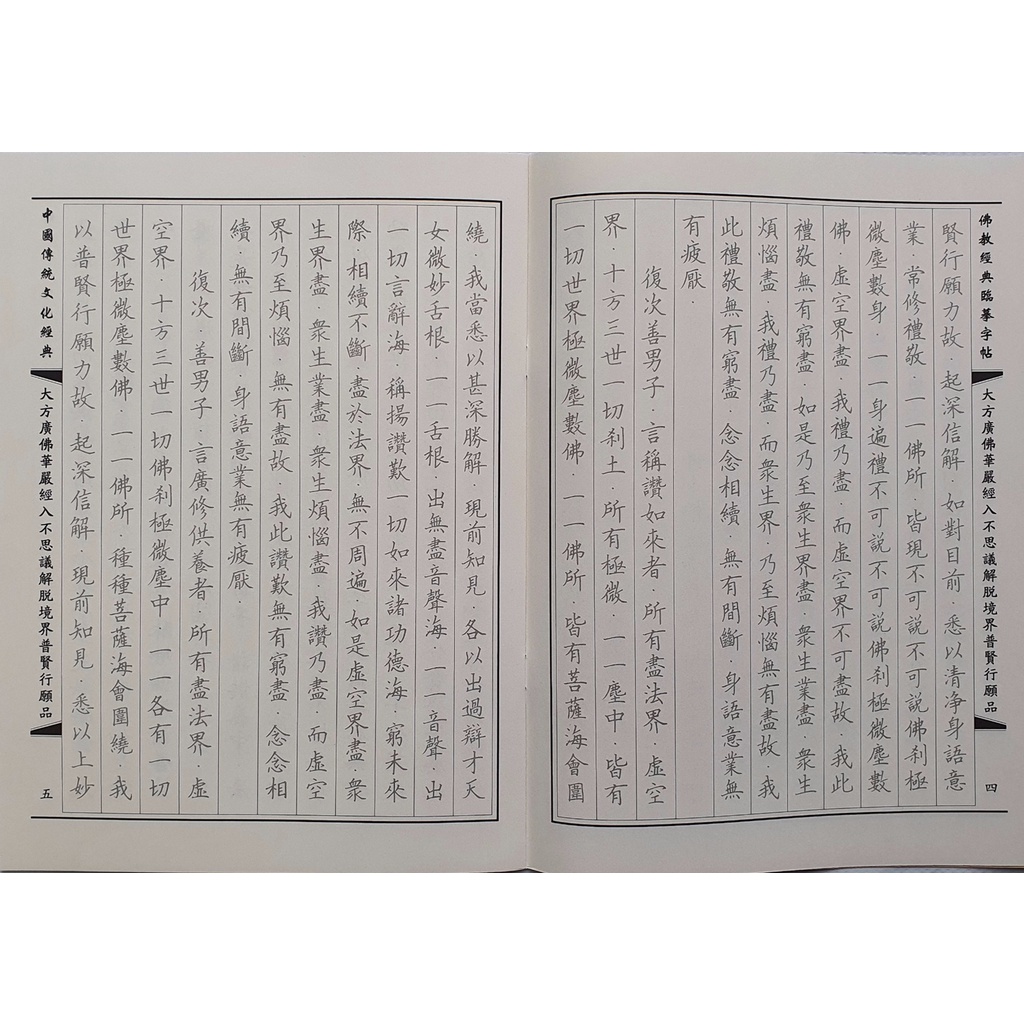 佛教經典臨摹字帖
大方廣佛華嚴經入不思議解脱境界普賢行願品
四
賢行願力故．起深信解．如對目前．悉以清淨身語意
業．常修禮敬．一一佛所．皆現不可說不可說佛刹極
微塵數身．一一身遍禮不可説不可説佛刹極微塵數
佛．虛空界盡．我禮乃盡．而虛空界不可盡故．我此
禮敬無有窮盡．如是乃至衆生界盡．衆生業盡．衆生
煩惱盡．我禮乃盡．而衆生界．乃至煩惱無有盡故．我
此禮敬無有窮盡．念念相續．無有間斷．身語意業無
有疲厭．
復次善男子．言稱讚如來者．所有盡法界．虛空
界．十方三世一切刹土．所有極微．一一塵中．皆有
一切世界極微塵數佛．一一佛所．皆有菩薩海會圍
繞．我當悉以甚深勝解．現前知見．各以出過辯才天
女微妙舌根．一一舌根．出無盡音聲海．一一音聲．出
一切言辭海．稱揚讚歎一切如來諸功德海．窮未來
際．相續不斷．盡於法界．無不周遍．如是虛空界盡．衆
生界盡．衆生業盡．衆生煩惱盡．我讚乃盡．而虛空
界乃至煩惱．無有盡故．我此讚歎無有窮盡．念念相
續．無有間斷．身語意業無有疲厭．
復次．善男子．言廣修供養者．所有盡法界．虛
空界．十方三世一切佛刹極微塵中．一一各有一切
世界極微塵數佛．一一佛所．種種菩薩海會圍繞．我
以普賢行願力故．起深信解．現前知見．悉以上妙
中國傳統文化經典
大方廣佛華嚴經入不思議解脱境界普賢行願品
五